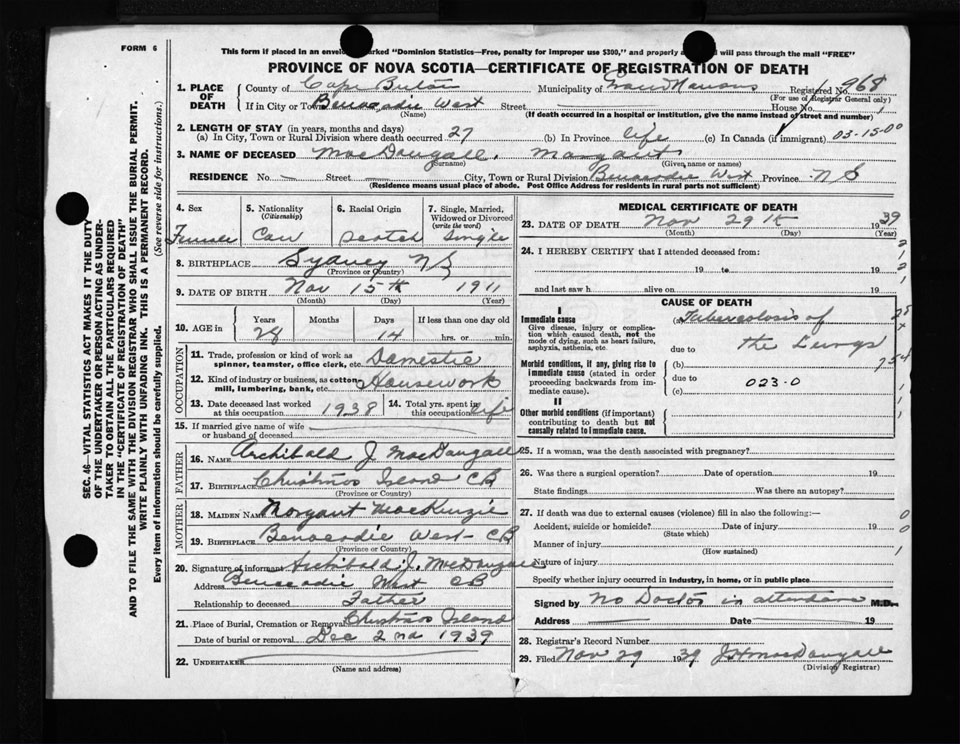 FORM 6
This form if placed in an envelope marked "Dominion Statistics—Free, penalty for improper use $300," and properly will pass through the mail "FREE"
PROVINCE OF NOVA SCOTIA—CERTIFICATE OF REGISTRATION OF DEATH
1. PLACE OF DEATH County of Cape Breton Municipality of Registered No. 968
(For use of Registrar General only)
If in City or Town Benacadie West Street House No.
(Name) (If death occurred in a hospital or institution, give the name instead of street and number)
2. LENGTH OF STAY (in years, months and days)
(a) In City, Town or Rural Division where death occurred 27 (b) In Province life (c) In Canada (if immigrant) 03-15-00
3. NAME OF DECEASED MacDougall, Margaret
(Surname) (Given name or names)
RESIDENCE No. — Street — City, Town or Rural Division Benacadie West Province N S
(Residence means usual place of abode. Post Office Address for residents in rural parts not sufficient)
4. Sex Female
5. Nationality (Citizenship) Can
6. Racial Origin Scotch
7. Single, Married, Widowed or Divorced (write the word) Single
8. BIRTHPLACE Sydney N S
(Province or Country)
9. DATE OF BIRTH Nov 15th 1911
(Month) (Day) (Year)
10. AGE in Years 28 Months Days 14 If less than one day old hrs. or min.
OCCUPATION
11. Trade, profession or kind of work as spinner, teamster, office clerk, etc. Domestic
12. Kind of industry or business, as cotton mill, lumbering, bank, etc. Housework
13. Date deceased last worked at this occupation 1938
14. Total yrs. spent in this occupation life
15. If married give name of wife or husband of deceased
FATHER
16. NAME Archibald J MacDougall
17. BIRTHPLACE Christmas Island CB
(Province or Country)
MOTHER
18. MAIDEN NAME Margaret MacKenzie
19. BIRTHPLACE Benacadie West CB
(Province or Country)
20. Signature of informant Archibald J. MacDougall
Address Benacadie West CB
Relationship to deceased Father
21. Place of Burial, Cremation or Removal Christmas Island
Date of burial or removal Dec 2nd 1939
22. UNDERTAKER
(Name and address)
MEDICAL CERTIFICATE OF DEATH
23. DATE OF DEATH Nov 29th 1939
(Month) (Day) (Year)
24. I HEREBY CERTIFY that I attended deceased from:
19 to 19
and last saw h alive on 19
CAUSE OF DEATH
I
Immediate cause (a) Tuberculosis of
Give disease, injury or complication which caused death, not the mode of dying, such as heart failure, asphyxia, asthenia, etc.
due to the Lungs
Morbid conditions, if any, giving rise to immediate cause (stated in order proceeding backwards from immediate cause).
(b)
due to 023.0
(c)
II
Other morbid conditions (if important) contributing to death but not causally related to immediate cause.
25. If a woman, was the death associated with pregnancy?
26. Was there a surgical operation? Date of operation 19
State findings Was there an autopsy?
27. If death was due to external causes (violence) fill in also the following:—
Accident, suicide or homicide? Date of injury 19
(State which)
Manner of injury
(How sustained)
Nature of injury
Specify whether injury occurred in industry, in home, or in public place
Signed by No Doctor in attendance M.D.
Address Date 19
28. Registrar's Record Number
29. Filed Nov 29 1939 J H MacDougall
(Division Registrar)
SEC. 46—VITAL STATISTICS ACT MAKES IT THE DUTY
OF THE UNDERTAKER OR PERSON ACTING AS UNDER-
TAKER TO OBTAIN ALL THE PARTICULARS REQUIRED
IN THE "CERTIFICATE OF REGISTRATION OF DEATH"
AND TO FILE THE SAME WITH THE DIVISION REGISTRAR WHO SHALL ISSUE THE BURIAL PERMIT.
WRITE PLAINLY WITH UNFADING INK. THIS IS A PERMANENT RECORD.
Every item of information should be carefully supplied. (See reverse side for instructions.)